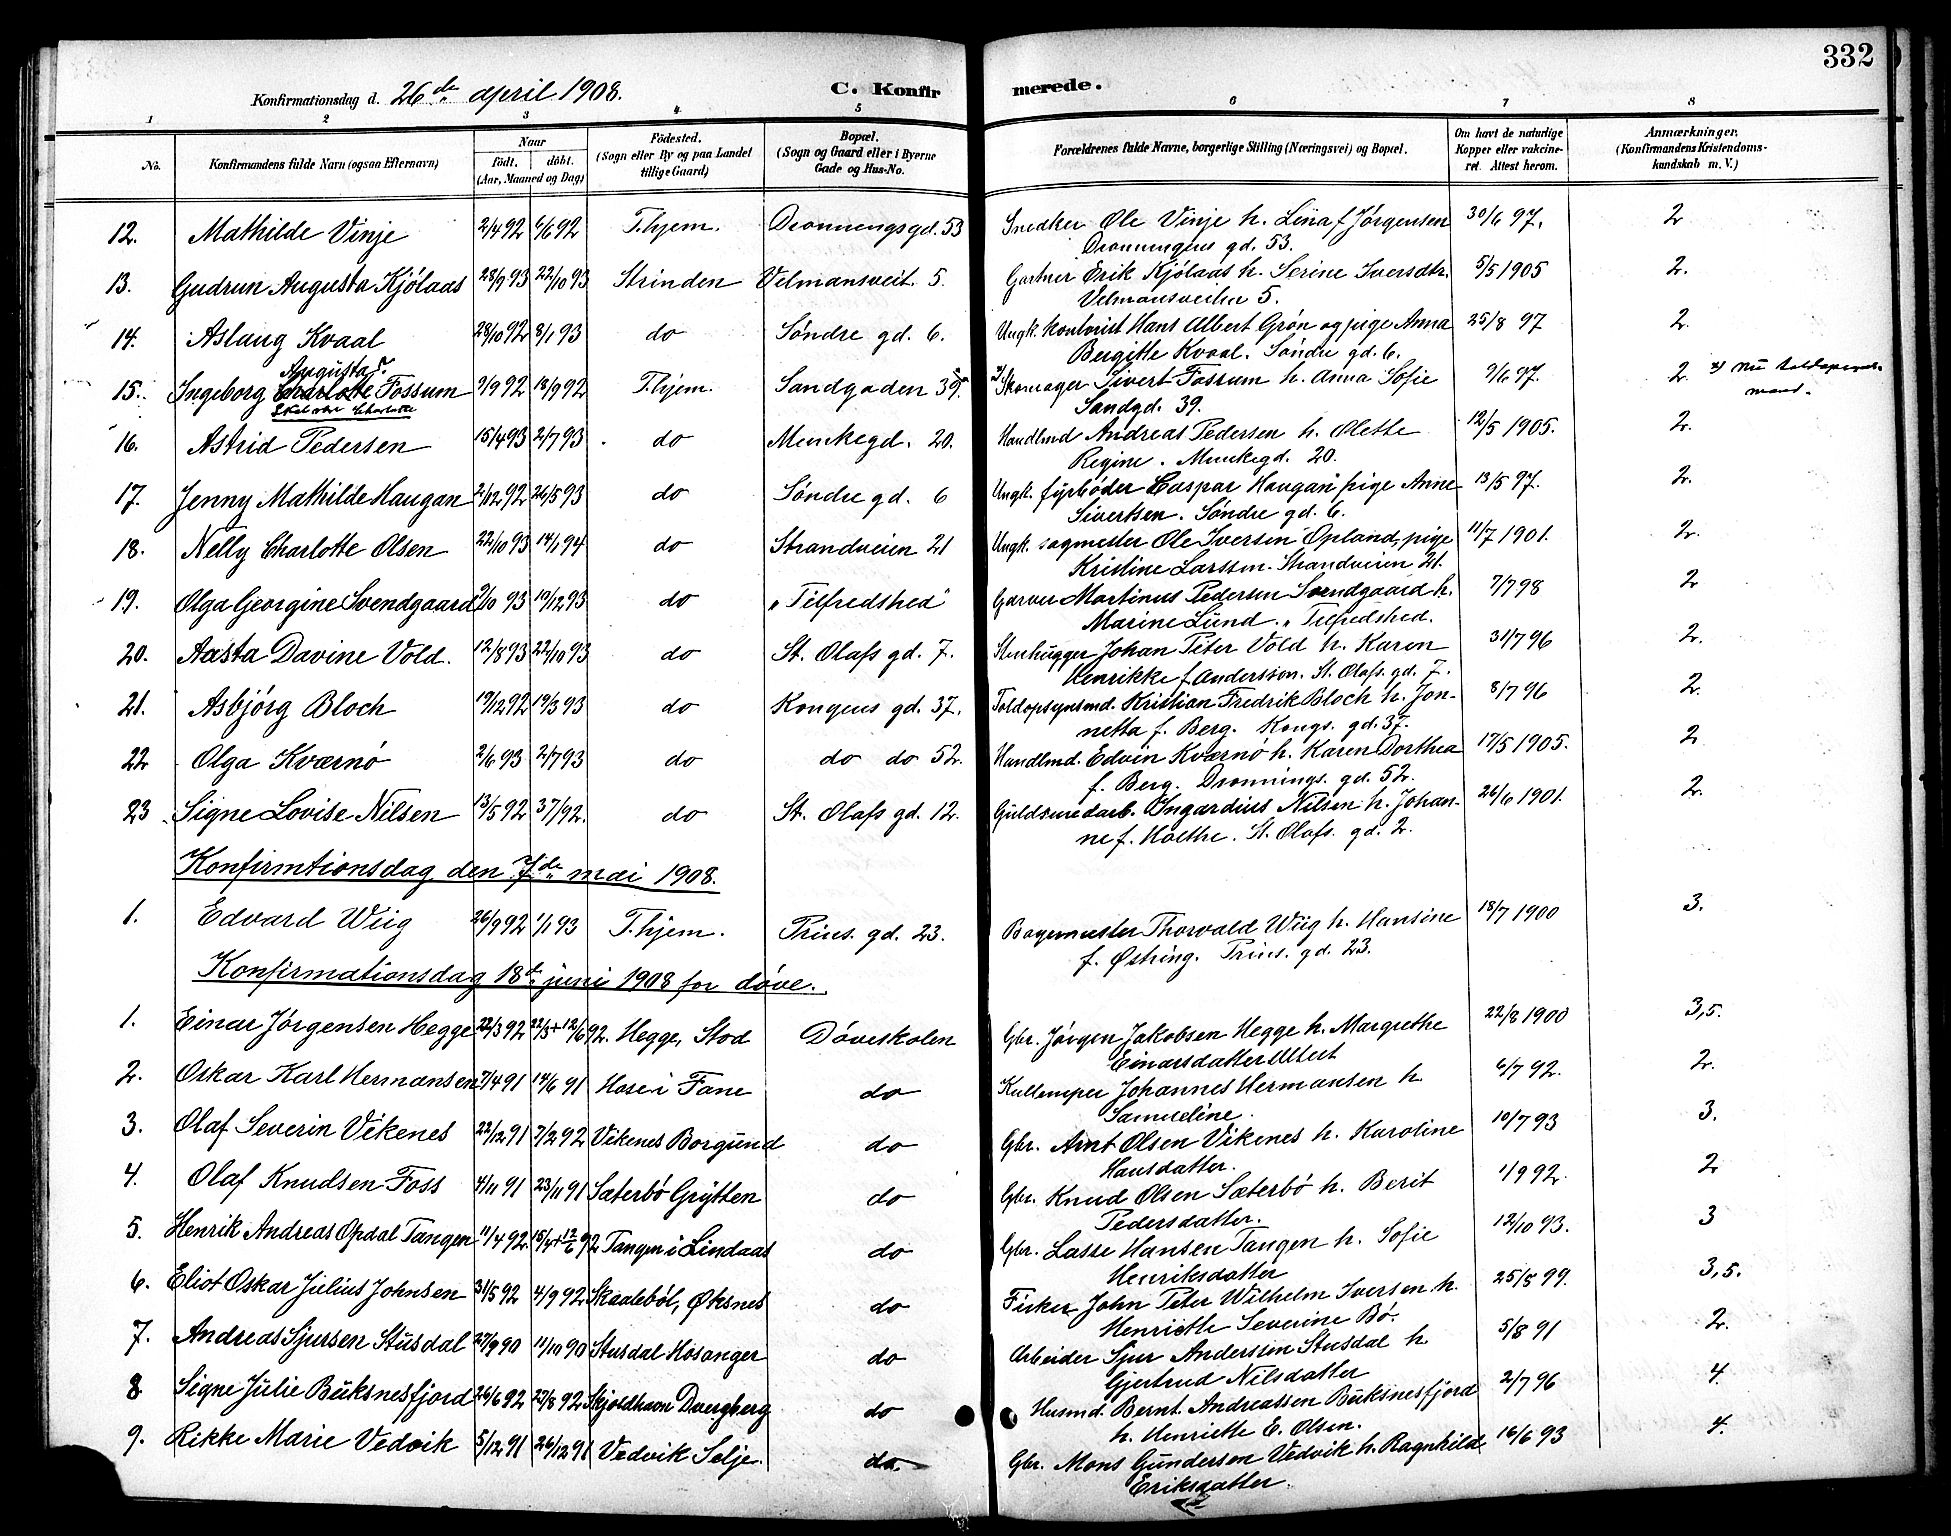 332
Konfirmationsdag d. 26de april 1908. C. Konfirmerede.
1 2 3 4 5 6 7 8
No. Konfirmandens fulde Navn (ogsaa Efternavn) Naar født. døbt. (Aar, Maaned og Dag) Fødested. (Sogn eller By og paa Landet tillige Gaard) Bopæl. (Sogn og Gaard eller i Byerne Gade og Hus-No. Forældrenes fulde Navne, borgerlige Stilling (Næringsvei) og Bopæl. Om havt de naturlige Kopper eller vakcineret. Attest herom. Anmærkninger. (Konfirmandens Kristendomskundskab m. V.)
12. Mathilde Vinje 2/4 92 6/6 92 T.hjem. Dronningsgd. 53 Snedker Ole Vinje h. Lina f. Jørgensen 30/6 97. 2
Dronningens gd. 53.
13. Gudrun Augusta Kjölaas 28/9 93 22/10 93 Strinden Velmansveit. 5. Gartner Erik Kjölaas h. Serine Iversdtr. 5/5 1905 2.
Velmansveiten 5.
14. Aslaug Kvaal 28/10 92 8/1 93 do Søndre gd. 6. Ungk. kontorist Hans Albert Grøn og pige Anna 25/8 97 2.
Bergitte Kvaal. Søndre gd. 6.
Augusta
15. Ingeborg Charlotte Fossum 9/9 92 18/9 92 T.hjem. Sandgaden 39. Skomager Sivert Fossum h. Anna Sofie 9/6 97. 2 x) Nu toldopsynsmand.
Skal være Charlotte
Sandgd. 39.
16. Astrid Pedersen 15/4 93 2/7 93 do Munkegd. 20. Handlmd Andreas Pedersen h. Olette 12/5 1905. 2.
Regine. Munkegd. 20.
17. Jenny Mathilde Haugan 2/12 92 26/5 93 do Søndre gd. 6 Ungk. fyrbøder Caspar Haugan pige Anne 13/5 97. 2.
Sivertsen. Søndre gd. 6.
18. Nelly Charlotte Olsen 22/10 93 14/1 94 do Strandveien 21 Ungk. sagmester Ole Iversen Opland, pige 11/7 1901. 2.
Kristine Larssen. Strandveien 21.
19. Olga Georgine Svendgaard 9/10 93 19/12 93 do "Tilfredshed" Garver Martinus Pedersen Svendgaard h. 7/7 98 2
Marine Lund. "Tilfredshed.
20. Aasta Davine Vold. 12/8 93 22/10 93 do St. Olafs gd. 7. Stenhugger Johan Peter Vold h. Karen 31/7 96 2.
Henrikke f. Andersson. St. Olafs gd. 7.
21. Asbjörg Bloch 19/12 92 19/3 93 do Kongens gd. 37. Toldopsynsmd. Kristian Fredrik Bloch h. Jon- 8/7 96 2.
netta f. Berg. Kongs. gd. 37.
22 Olga Kværnø 2/6 93 2/7 93 do do do 52. Handlmd. Edvin Kværnø h. Karen Dorthea 17/5 1905. 2
f. Berg. Dronnings. gd. 52.
23 Signe Lovise Nilsen 13/5 92 3/7 92. do St. Olafs gd. 12. Guldsmedarb. Ingardius Nilsen h. Johan- 26/6 1901. 2.
ne f. Holthe. St. Olafs. gd. 2.
Konfirmtionsdag den 7de mai 1908.
1. Edvard Wiig 26/9 92 1/1 93 T.hjem. Prins. gd. 23. Bagermester Thorvald Wiig h. Hansine 18/7 1900 3.
f. Østring. Prins. gd. 23.
Konfirmationsdag 18de juni 1908 for døve.
1. Einar Jørgensen Hegge 22/3 92 22/3 + 12/6 92. Hegge, Stod Døveskolen Gbr. Jørgen Jakobsen Hegge h. Margrethe 22/8 1900 3,5.
Einarsdatter
2. Oskar Karl Hermansen 7/4 91 14/6 91 Hosei Fane do Kullemper Johannes Hermansen h. 6/7 92. 2.
Samueline.
3. Olaf Severin Vikenes 22/12 91 7/2 92 Vikenes Borgund do Gbr. Arnt Olsen Vikenes h. Karoline 10/7 93 3.
Hansdatter.
4. Olaf Knudsen Foss 4/11 91 23/11 91 Sæterbø Grytten do Gbr. Knud Olsen Sæterbø h. Berit 1/9 92. 2
Pedersdatter.
5. Henrik Andreas Opdal Tangen 11/4 92. 15/4 + 12/6 92 Tangen i Lindaas do Gbr. Lasse Hansen Tangen h. Sofie 12/10 93. 3
Henriksdatter
6. Eliot Oskar Julius Johnsen 31/5 92 4/9 92 Skaalebøl, Øksnes do Fisker John Peter Wilhelm Iversen h. 25/8 99. 3,5.
Henriette Severine Bø.
7. Andreas Sjursen Stusdal 27/9 90 11/10 90 Stusdal Hosanger do Arbeider Sjur Anderssen Stusdal h 5/8 91 2.
Gjertrud Nilsdatter
8 Signe Julie Buksnesfjord 26/6 92 27/8 92 Skjoldhavn Dverberg do Husmd. Bernt Andreassen Buksnesfjord 2/7 96 4.
h. Henriette E. Olsen.
9. Rikke Marie Vedvik 5/12 91 26/12 91 Vedvik Selje. do. Gbr. Mons Gundersen Vedvik h. Ragnhild 16/6 93 4.
Eriksdatter.